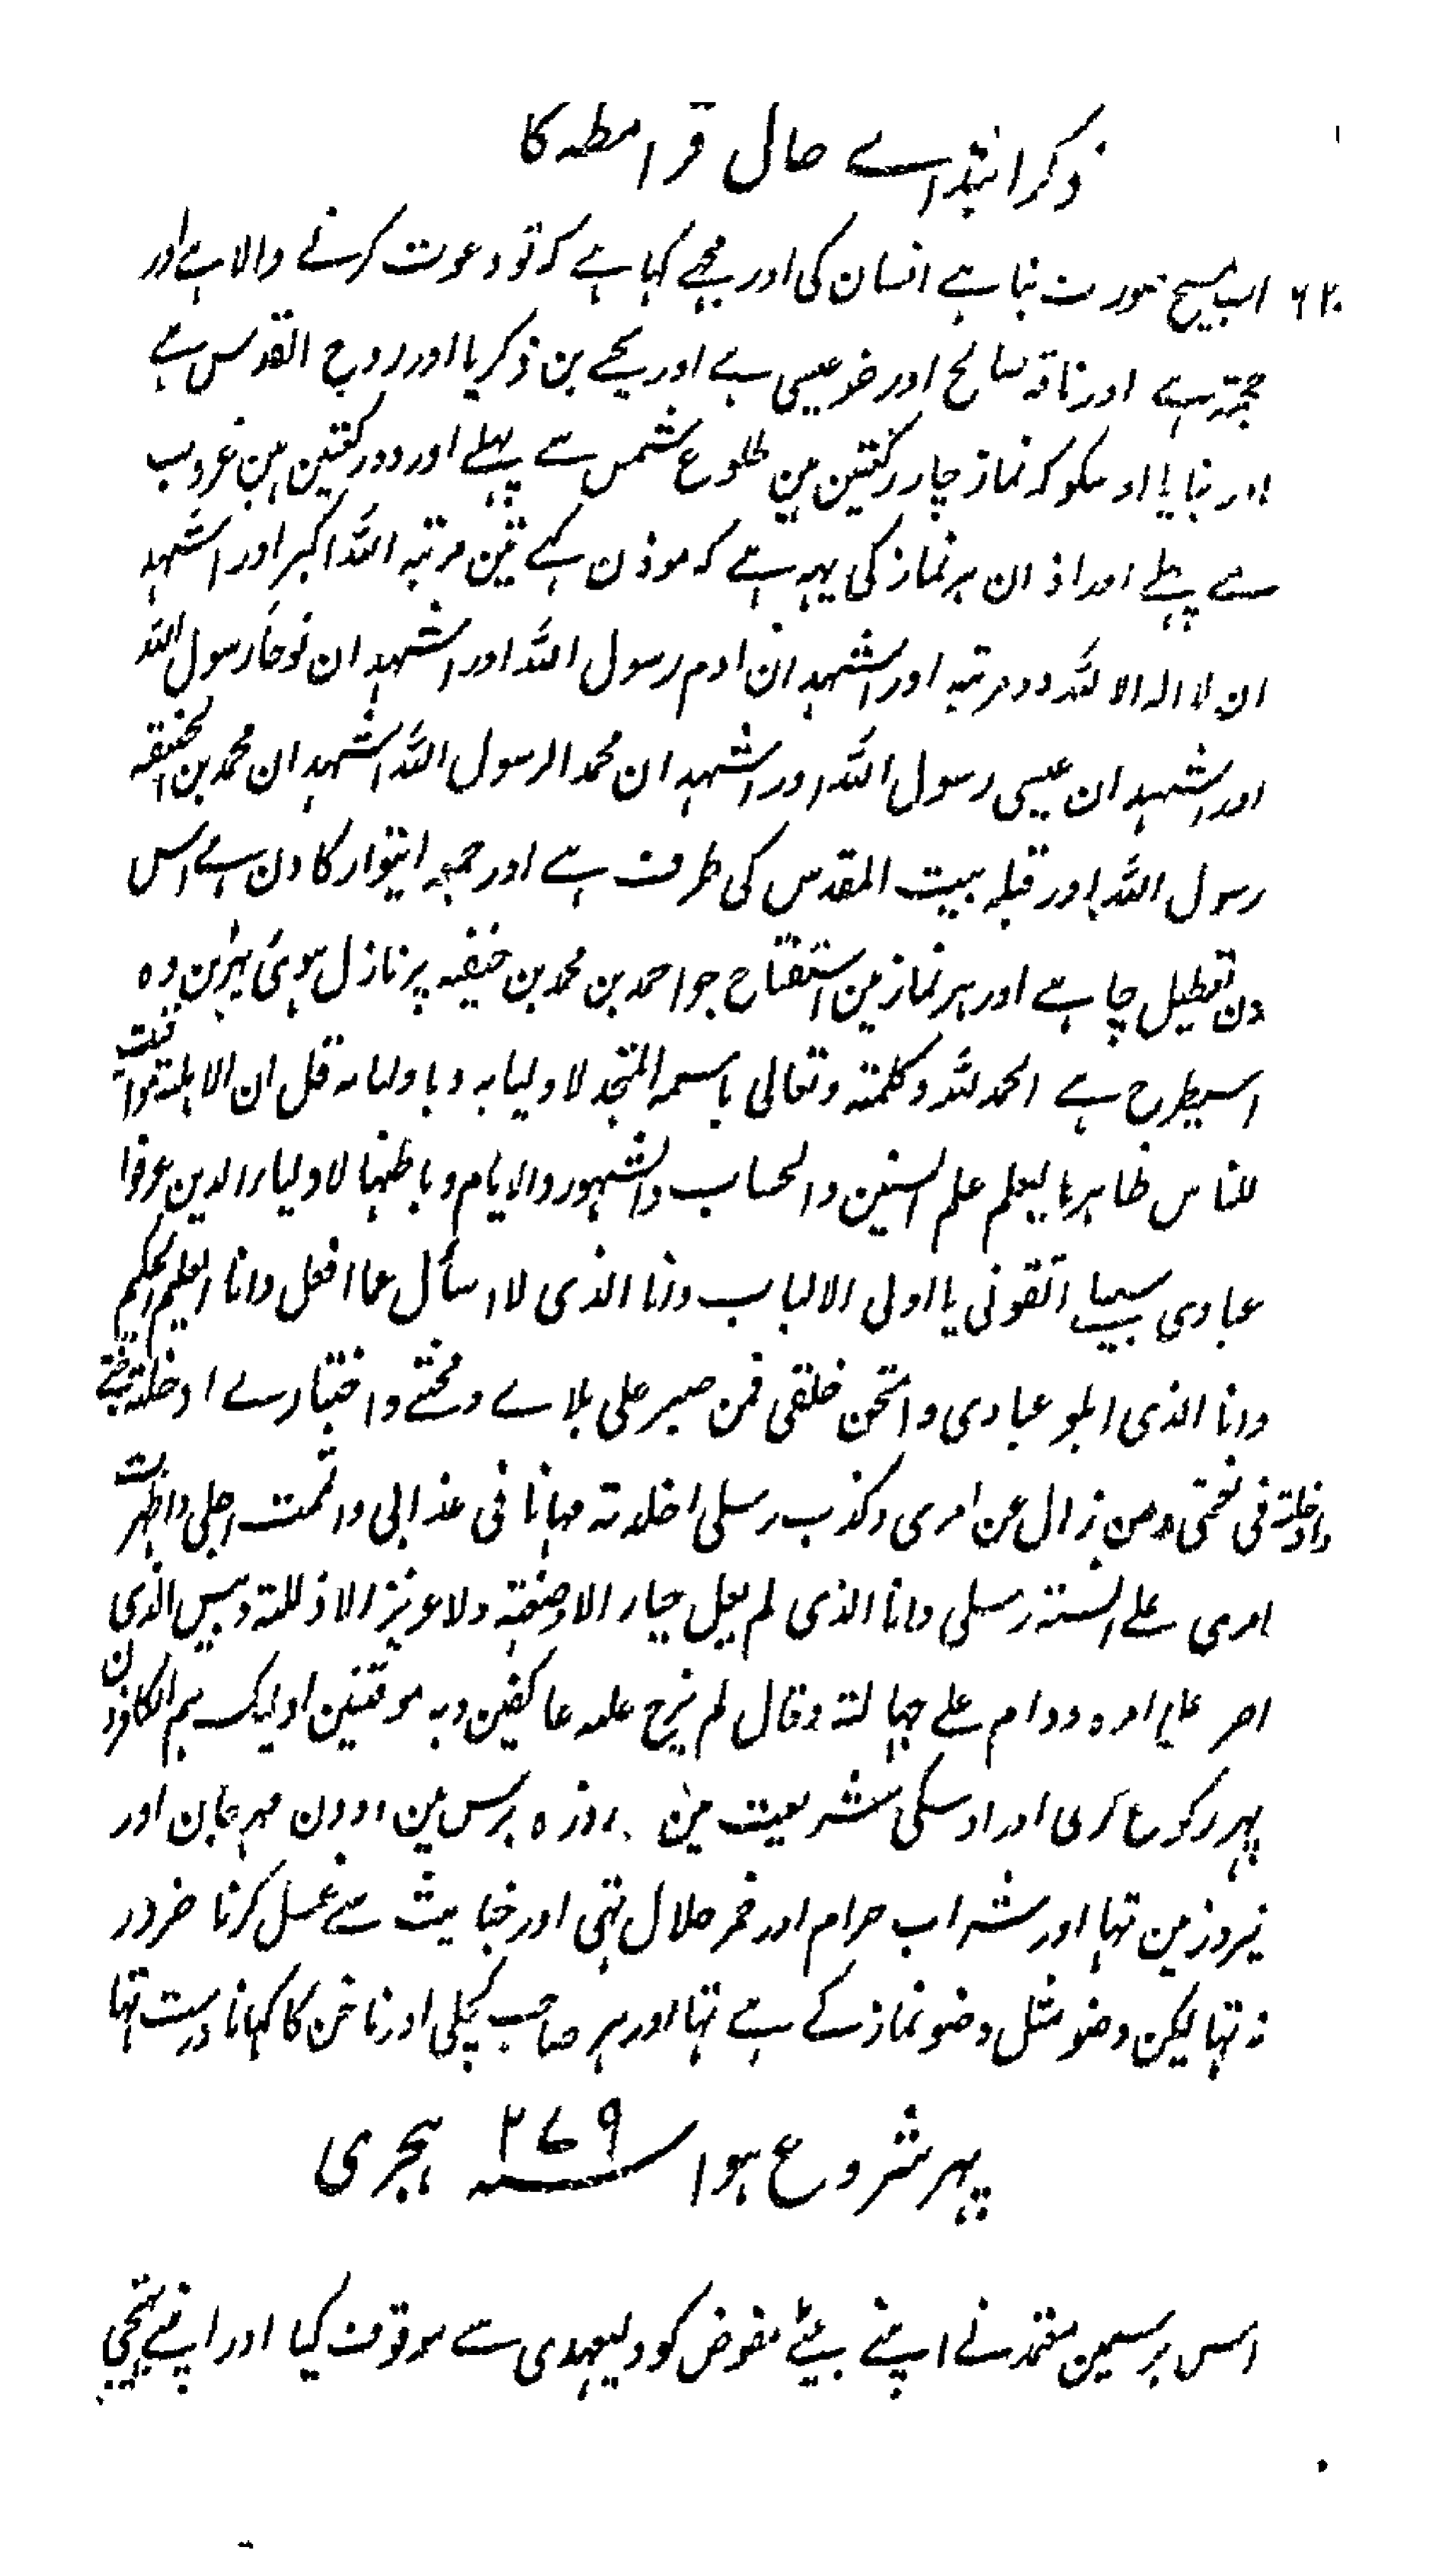 ذکر ابتداے حال قرامطہ کا
اب مسیح صورت بنا ہے انسان کی اور مجھے کہا ہے کہ تو دعوت کرنے والا ہے اور
حجۃ ہے اور ناقہ صالح اور خر عیسی ہے اور یحے بن ذکریا اور روح القدس ہے
اور بتایا اوسکو کہ نماز چار رکعتین ہین طلوع شمس سے پہلے اور دو رکعتین ہین غروب
سے پہلے اور اذان ہر نماز کی یہہ ہے کہ موذن کہے تین مرتبہ اللہ اکبر اور اشہد
ان لا الہ الا للہ دو مرتبہ اور اشہد ان ادم رسول اللہ اور اشہد ان نوحا رسول اللہ
اور اشہد ان عیسی رسول اللہ اور اشہد ان محمد الرسول اللہ اشہد ان محمد بن الحنیفہ
رسول اللہ اور قبلہ بیت المقدس کی طرف ہے اور جمعہ ایتوار کا دن ہے اس
دن تعطیل چاہے اور ہر نماز مین استفتاح جو احمد بن محمد بن حنیفہ پر نازل ہوئی پڑہین وہ
اسیطرح ہے الحمد للہ وکلمتہ وتعالی باسمہ المتجد لاولیابہ وباولیایہ قل ان الاہلۃ مواقیت
للناس ظاہرہا لیعلم علم السنین والحساب والشہور والایام وباطنہا لاولیار الدین عرفوا
عبادی سبیلے اتقونی یا اولی الالباب وانا الذی لا اسأل عما افعل وانا العلیم الحکیم
وانا الذی ابلو عبادی وامتحن خلقی فمن صبر علی بلاے ومحنتے واختبارے ادخلتہ جنتے
واخلدتہ فی نعمتی ومن زال عن امری وکذب رسلی اخلدتہ مہانا فی عذابی واتممت اجلی واظہرت
امری علے السنتہ رسلی وانا الذی لم یعل جبار الا وضعتہ ولا عزیز الا ذللتہ وبیس الذی
اصر علے امرہ ودام علے جہالتہ وقال لم نبرح علیہ عاکفین وبہ موقنین اولیک ہم الکافرون
پہر رکوع کری اور اوسکی شریعت مین روزہ برس مین دو دن مہرجان اور
نیروز مین تہا اور شراب حرام اور خمر حلال تہی اور جنابیت سے غسل کرنا ضرور
نہ تہا لیکن وضو مثل وضو نماز کے ہے تہا اور ہر صاحب کچلی اور ناخن کا کہانا درست تہا
پہر شروع ہوا سنہ ۲۷۹ ہجری
اس برسمین معتمد نے اپنے بیٹے مفوض کو ولیعہدی سے موقوف کیا اور اپنے بہتیجی